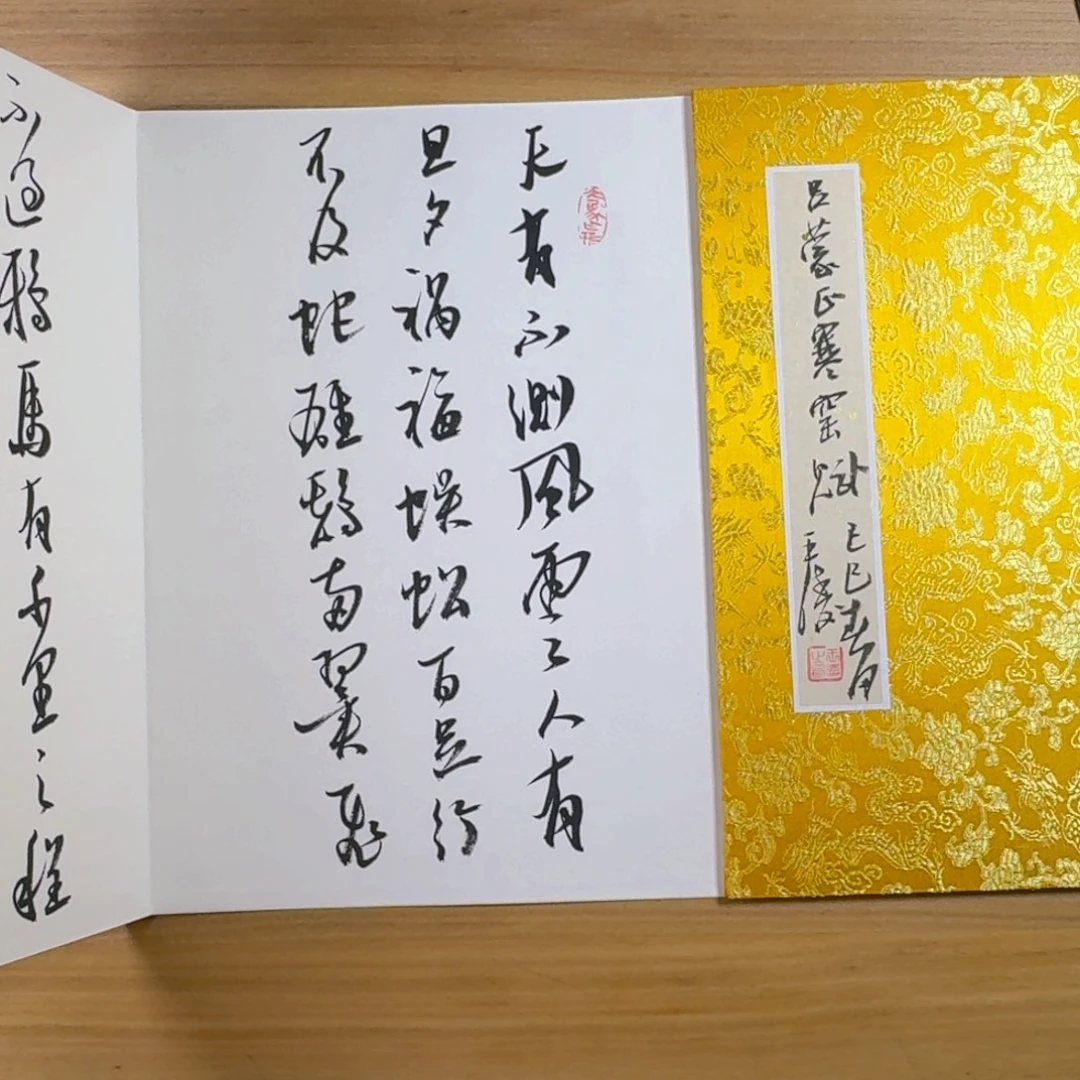 吕蒙正寒窑赋
乙巳春月
天有不测风雲人有
旦夕祸福蜈蚣百足行
不及蛇雞翁两翼飛
不過鸦馬有千里之程